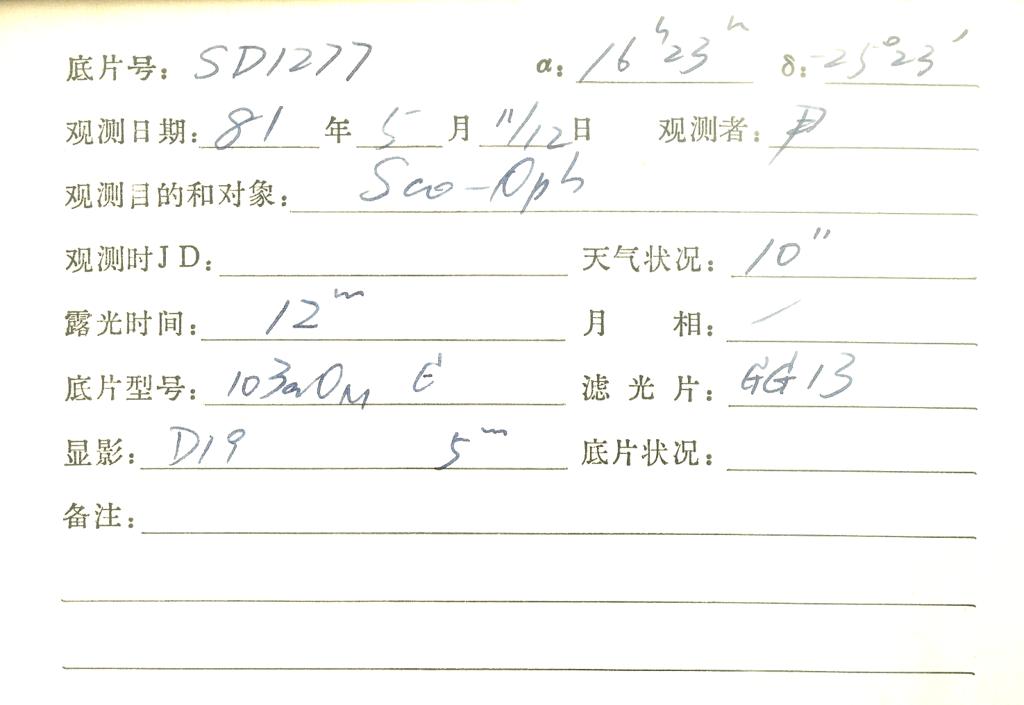 底片号: SD1277 α: 16ʰ23ᵐ δ: -25°23′
观测日期: 81 年 5 月 11/12 日 观测者:
观测目的和对象: Sco-Oph
观测时JD: 天气状况: 10″
露光时间: 12ᵐ 月 相: /
底片型号: 103aO 滤光片: GG13
显影: D19 5ᵐ 底片状况:
备注: